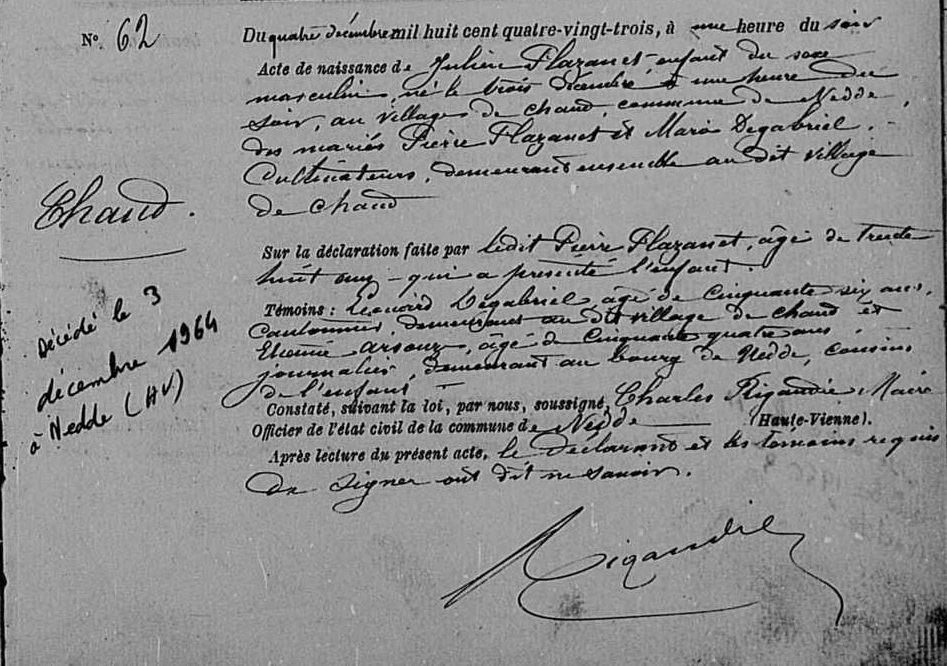 N° 62
Du quatre décembre mil huit cent quatre-vingt-trois, à une heure du soir
Acte de naissance de Julien Plazanet enfant du sexe
masculin, né le trois décembre à une heure du
soir, au village de chaud, commune de Nedde,
des mariés Pierre Plazanet et Maria Degabriel.
Cultivateurs, demeurant ensemble au dit village
de chaud
Chaud.
Sur la déclaration faite par ledit Pierre Plazanet, âgé de trente
huit ans - qui a présenté l'enfant.
Témoins : Léonard Degabriel, âgé de cinquante six ans,
Cantonnier, demeurant au dit village de chaud et
Etienne arsouze, âgé de cinquante quatre ans,
journalier, demeurant au bourg de Nedde, cousins
de l'enfant -
Décédé le 3
décembre 1964
à Nedde (HV)
Constaté, suivant la loi, par nous, soussigné, Charles Rigaudie Maire
Officier de l'état civil de la commune de Nedde (Haute-Vienne).
Après lecture du présent acte, le déclarant et les témoins requis
de signer ont dit ne savoir.
Rigaudie